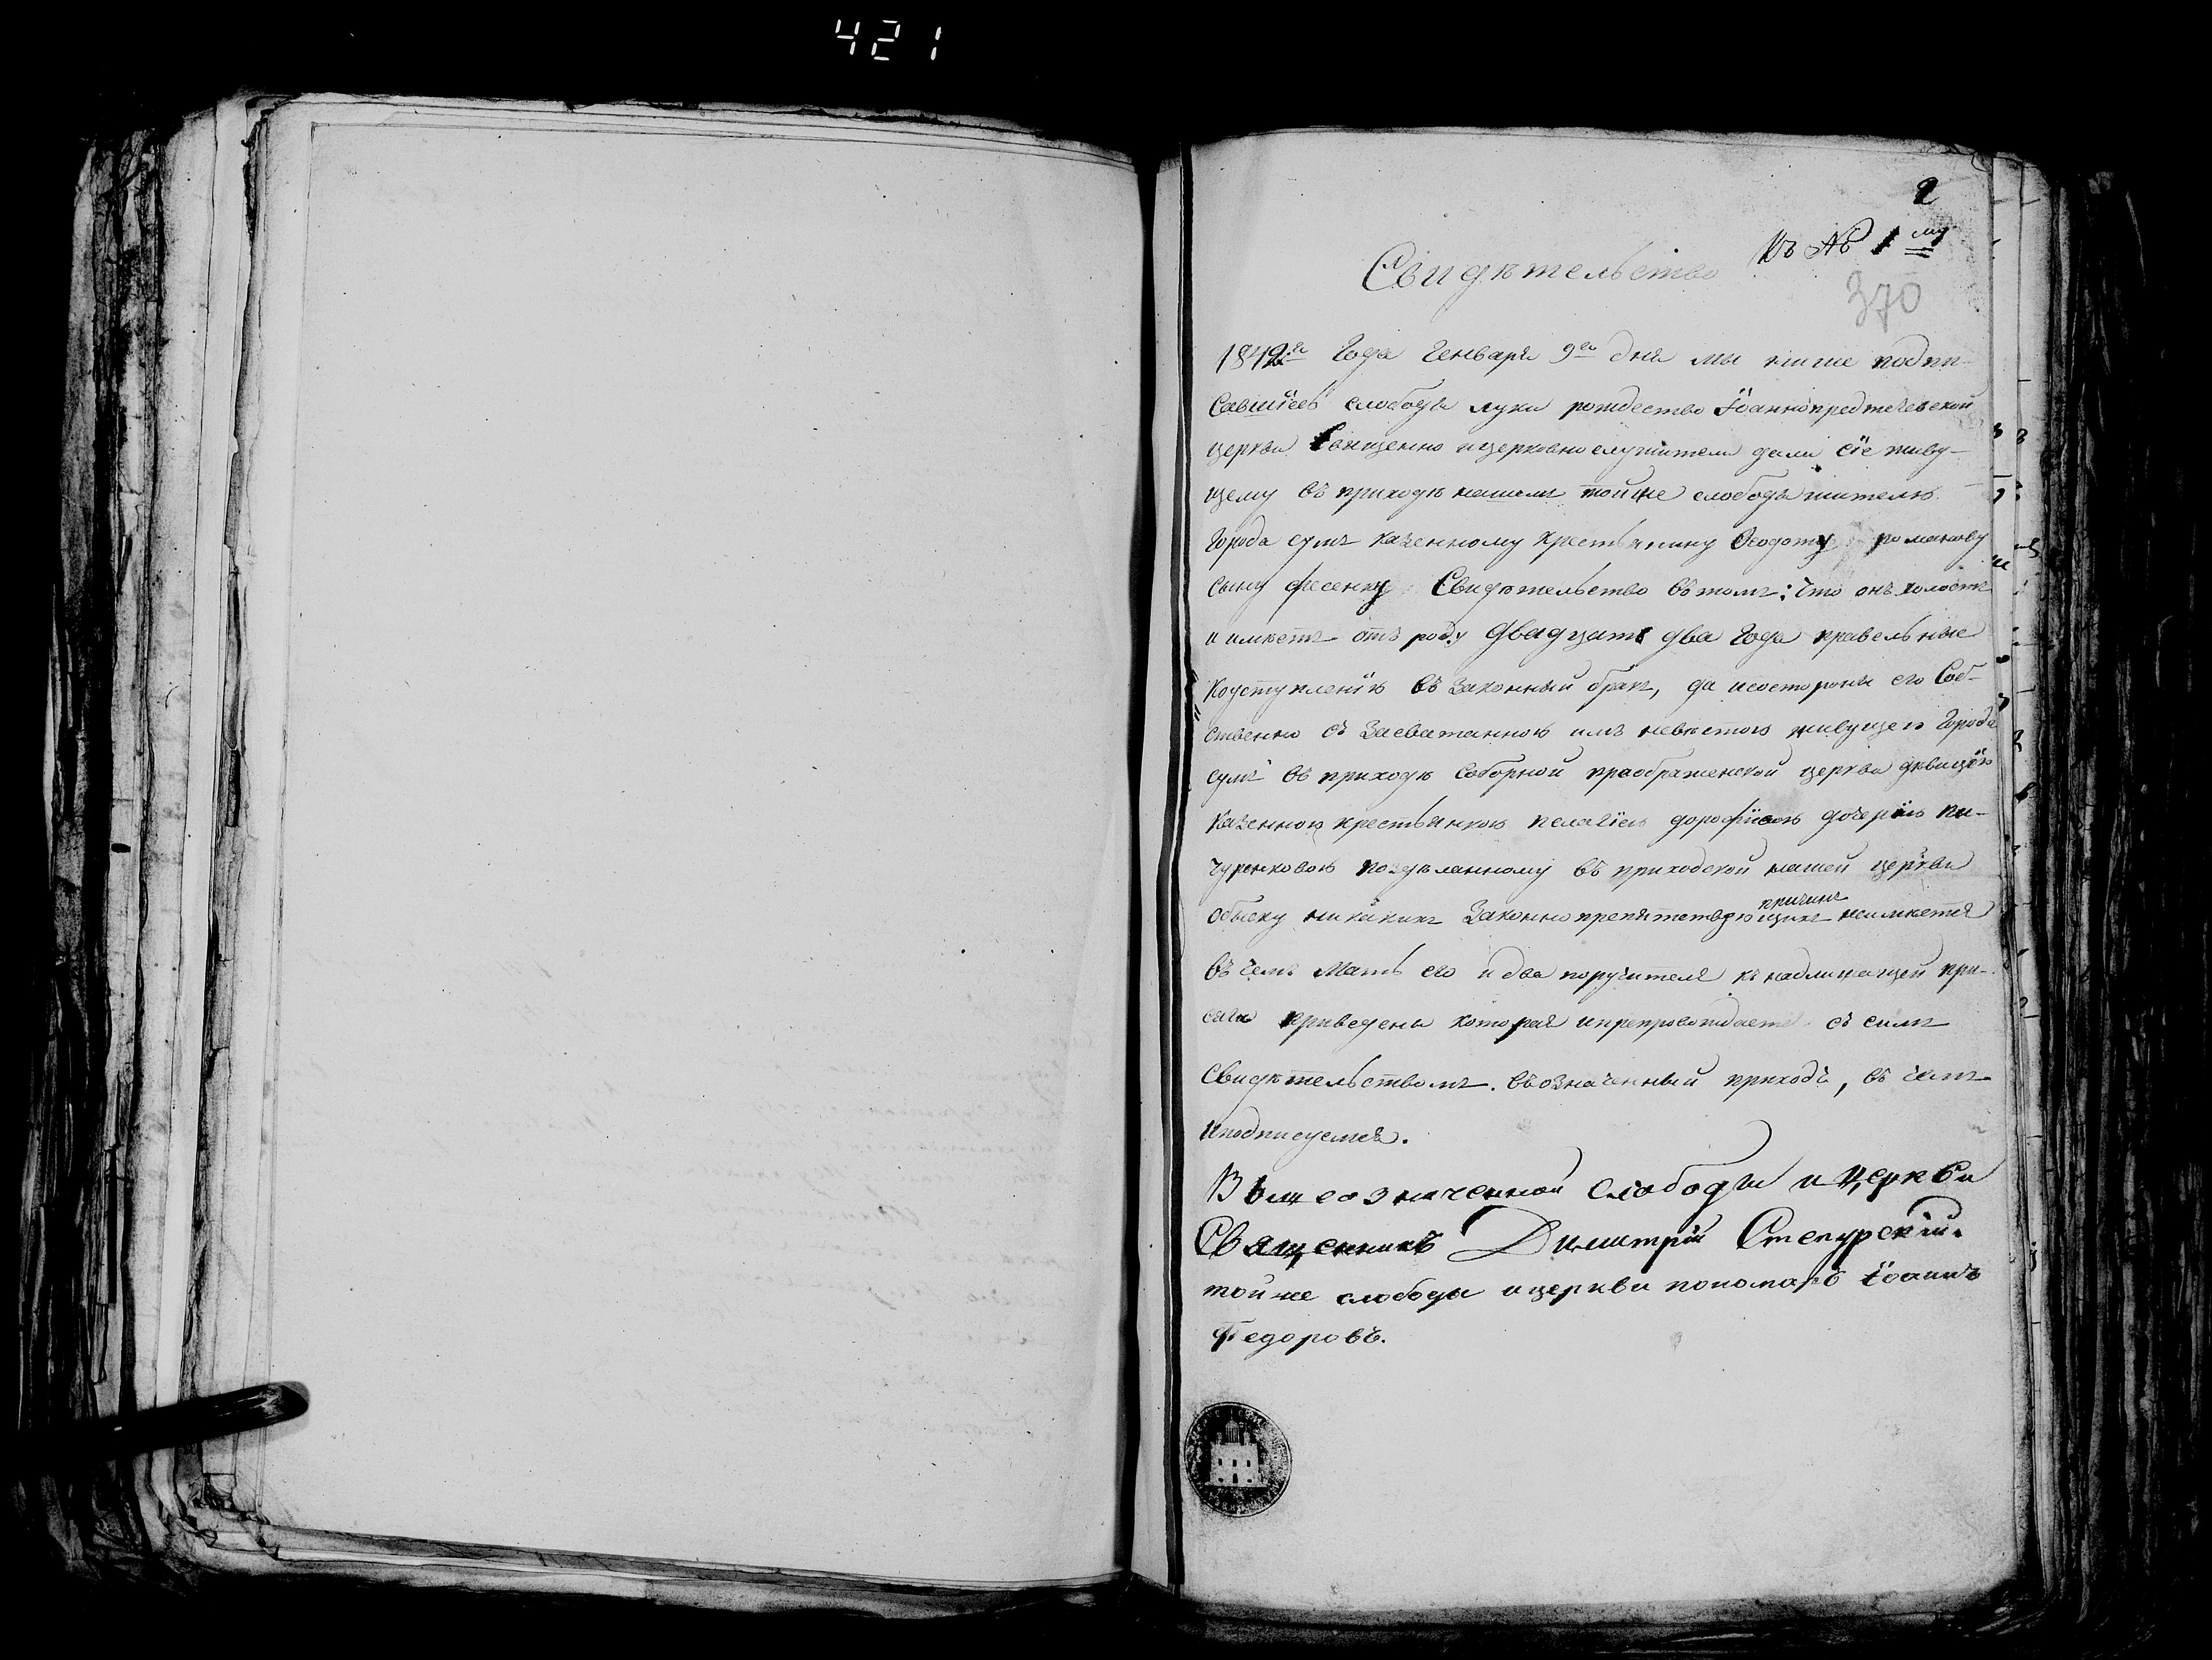 421
2
Къ № 1му
Свидѣтельство
370
1842го Года Генваря 9го дня мы ниже подпи-
савшіесь слободы луки рождество Іоаннопредтечевской
церкви Священно ицерковнослужители дали сіе живу-
щему въ приходѣ нашемъ тойже слободы жителю
Города сумъ казенному крестьянину Феодоту романову
сыну фесенку Свидѣтельство въ томъ: что онъ холостъ
и имѣетъ отъ роду двадцать два Года правельные
Коуступленію въ законный бракъ, да исостороны его Соб-
ственно съ Засватанною имъ невѣстою живущею Города
сумъ въ приходѣ Соборной праображенской церкви дѣвицѣю
Казенною крестьянкою пелагіею дорофіевою дочерью пи-
чуренковою поздѣланному въ приходской нашей церкви
причинъ
обыску никакихъ Законно препятствующихъ неимѣется
въ чемъ Мать его и два поручителя къ надлежащей при-
сяги приведены которая ипрепровождаетъ съ симъ
Свидѣтельствомъ въозначенный приходъ, въ чемъ
иподписуемся.
Вышеозначенной слободы и церкви
Священникъ Димитрій Степурскій.
тойже слободы ицеркви пономарь Іоаннъ
Федоровъ.